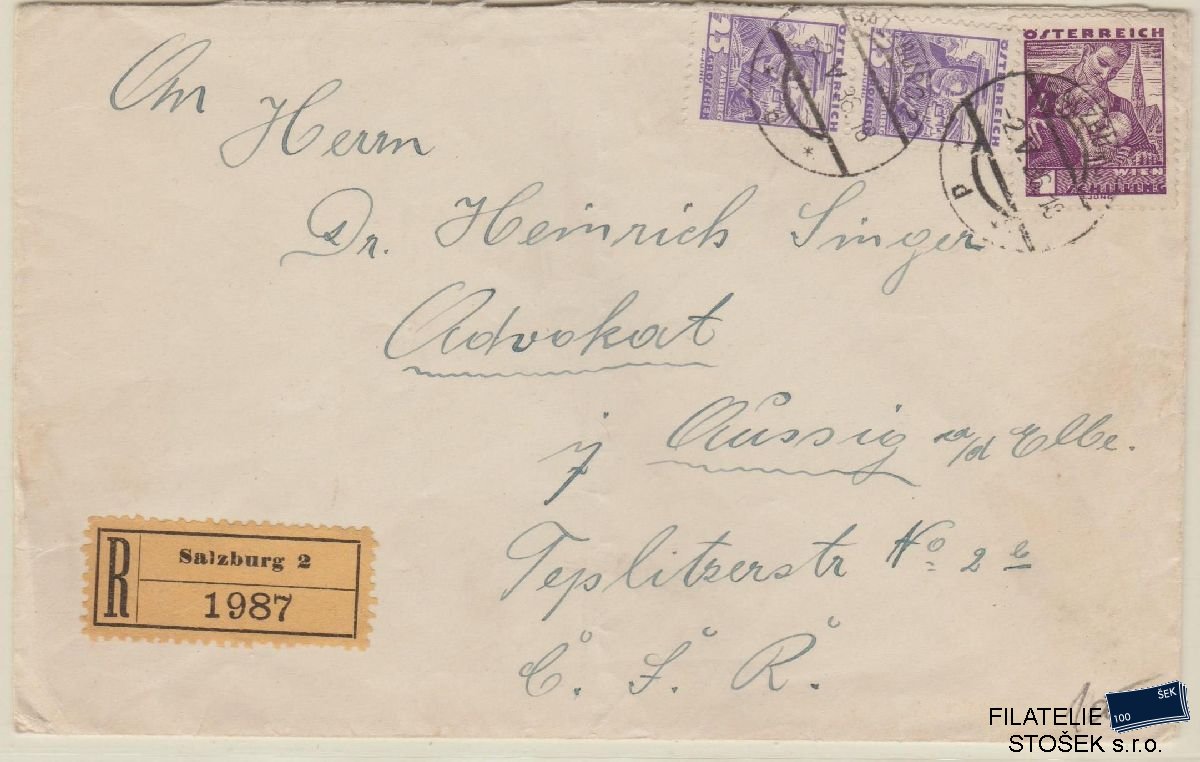 ÖSTERREICH
ÖSTERREICH
ÖSTERREICH
WIEN
An Herrn
Dr. Heinrich Singer
Advokat
Aussig a/d Elbe.
Teplitzerstr No 2
Č. S. R.
R
Salzburg 2
1987
100
ŠEK
FILATELIE
STOŠEK s.r.o.